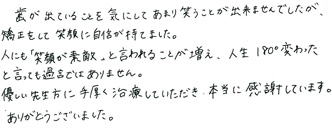 歯が出ていることを気にしてあまり笑うことが出来ませんでしたが、
矯正をして笑顔に自信が持てました。
人にも「笑顔が素敵。」と言われることが増え、人生180°変わった
と言っても過言ではありません。
優しい先生方に手厚く治療していただき、本当に感謝しています。
ありがとうございました。